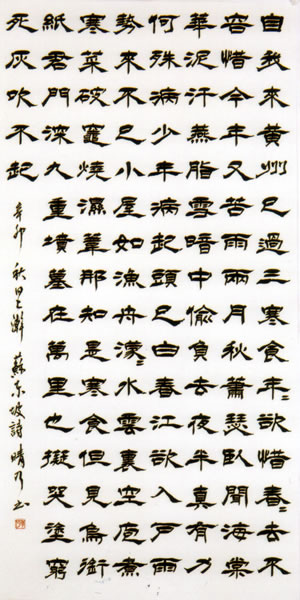 自我來黃州已過三寒食年〻欲惜春〻去不
容惜今年又苦雨兩月秋蕭瑟臥聞海棠
華泥汙燕脂雪暗中偷負去夜半真有力
何殊病少年病起頭已白春江欲入戶雨
勢來不已小屋如漁舟濛〻水雲裏空庖煮
寒菜破竈燒濕葦那知是寒食但見烏銜
紙君門深九重墳墓在萬里也擬哭塗窮
死灰吹不起
辛卯 秋日上澣 蘇東坡詩